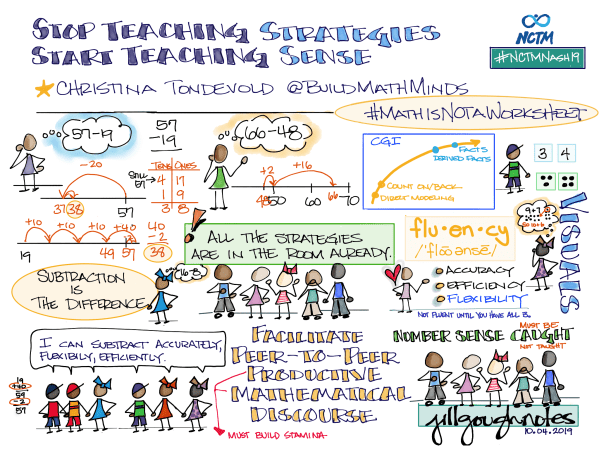 STOP TEACHING STRATEGIES
START TEACHING SENSE
NCTM
#NCTMNASH19
CHRISTINA TONDEVOLD @BUILDMATHMINDS
#MATHISNOTAWORKSHEET
57-19
57
-19
66-48
-20
37 38
57
STILL 57
TENS ONES
4 17
1 9
3 8
+2
+16
48 50 60 66 70
CGI
FACTS
DERIVED FACTS
COUNT ON/BACK
DIRECT MODELING
3 4
VISUALS
+10 +10 +10 +10
19 49 57
40
-2
38
ALL THE STRATEGIES
ARE IN THE ROOM ALREADY.
flu·en·cy
ACCURACY
EFFICIENCY
FLEXIBILITY
NOT FLUENT UNTIL YOU HAVE ALL 3.
SUBTRACTION
IS
THE DIFFERENCE
I CAN SUBTRACT ACCURATELY,
FLEXIBLY, EFFICIENTLY.
19
+40
59
-2
57
FACILITATE
PEER-TO-PEER
PRODUCTIVE
MATHEMATICAL
DISCOURSE
MUST BUILD STAMINA
NUMBER SENSE CAUGHT
MUST BE
NOT TAUGHT
jillgoughnotes
10.04.2019